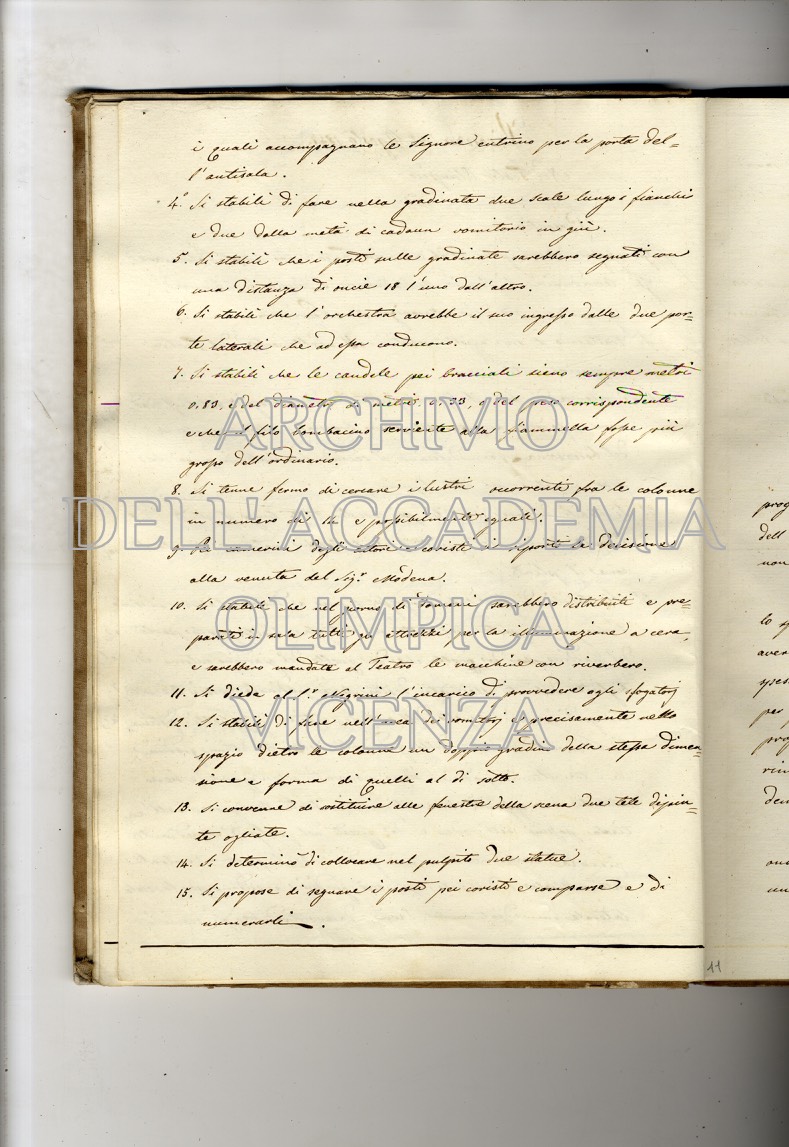 i quali accompagnano le Signore entrino per la porta del=
l'antisala.
4.° Si stabilì di fare nella gradinata due scale lungo i fianchi
e due dalla metà di cadaun vomitorio in giù.
5.° Si stabilì che i posti sulle gradinate sarebbero segnati con
una distanza di oncie 18 l'uno dall'altro.
6. Si stabilì che l'orchestra avrebbe il suo ingresso dalle due por=
te laterali che ad essa conducono.
7. Si stabilì che le candele pei bracciali sieno sempre metri
0,83, e del diametro di metri 0.33, e del peso corrispondente
e che il filo bombacino serviente alla fiammella fosse più
grosso dell'ordinario.
8. Si tenne fermo di cercare i lustri occorrenti fra le colonne
in numero di sei e possibilmente eguali.
9. Pei camerini degli attori e coristi si riportò la decisione
alla venuta del Sig.r Modena.
10. Si stabilì che nel giorno di domani sarebbero distribuiti e pre=
parati in sala tutti gli attrezzi per la illuminazione a cera,
e sarebbero mandate al Teatro le macchine con riverbero.
11. Si diede al S.r Negrini l'incarico di provvedere agli sfogatoj
12. Si stabilì di fare nell'area dei vomitorj e precisamente nello
spazio dietro le colonne un doppio gradino della stessa dimen=
sione e forma di quelli al di sotto.
13. Si convenne di sostituire alle fenestre della scena due tele dipin=
te ogliate.
14. Si determinò di collocare nel pulpito due statue.
15. Si propose di segnare i posti pei coristi e comparse e di
numerarli.
11
ARCHIVIO
DELL'ACCADEMIA
OLIMPICA
VICENZA